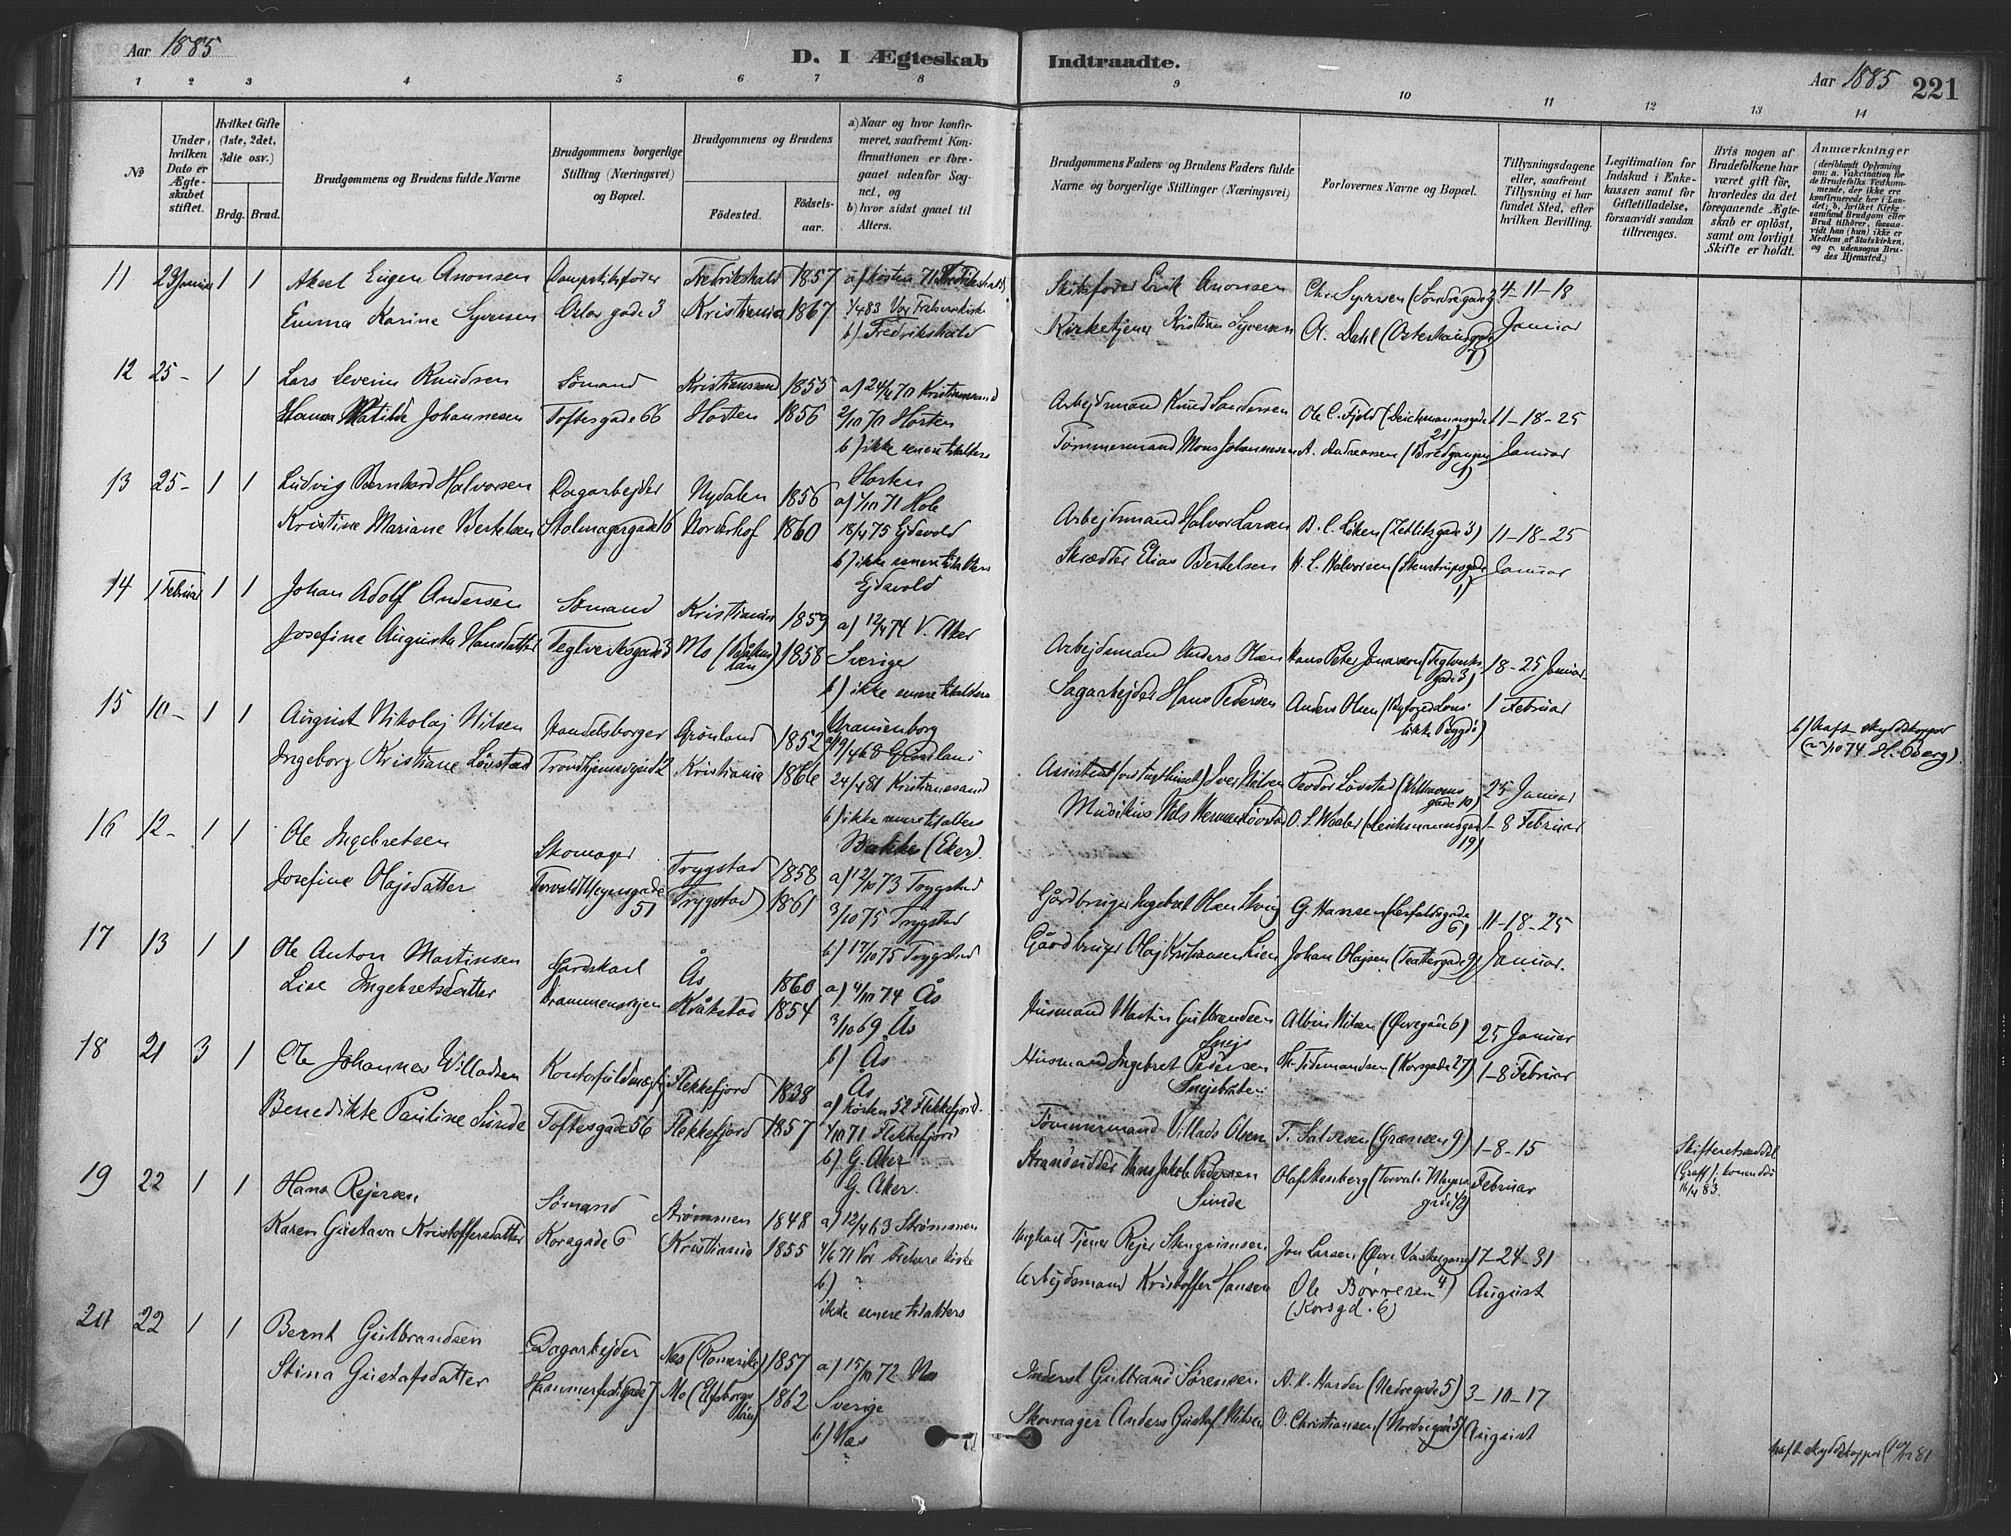 Aar 1885
D. I Ægteskab
Indtraadte.
Aar 1885
221
1 2 3 4 5 6 7 8 9 10 11 12 13 14
№
Under hvilken Dato er Ægteskabet stiftet.
Hvilket Gifte (1ste, 2det, 3die osv.)
Brdg. Brud.
Brudgommens og Brudens fulde Navne
Brudgommens borgerlige Stilling (Næringsvei) og Bopæl.
Brudgommens og Brudens
Fødested.
Fødselsaar.
a) Naar og hvor konfirmeret, saafremt Konfirmationen er foregaaet udenfor Sognet, og
b) hvor sidst gaaet til Alters.
Brudgommens Faders og Brudens Faders fulde Navne og borgerlige Stillinger (Næringsvei)
Forlovernes Navne og Bopæl.
Tillysningsdagene eller, saafremt Tillysning ei har fundet Sted, efter hvilken Bevilling.
Legitimation for Indskud i Enkekassen samt for Giftetilladelse, forsaavidt saadan tiltrænges.
Hvis nogen af Brudefolkene har været gift før, hvorledes da det foregaaende Ægteskab er opløst, samt om lovligt Skifte er holdt.
Anmærkninger
(deriblandt Oplysning om: a. Vakcination for de Brudefolks Vedkommende, der ikke ere konfirmerede her i Landet; b. hvilket Kirkesamfund Brudgom eller Brud tilhører, forsaavidt han (hun) ikke er Medlem af Statskirken, og c. udensogns Brudes Hjemsted.)
11 23 Januar 1 1 Aksel Eugen Anonsen Dampskibsfører Fredrikshald 1857 a) høsten 71 Fredrikshald Skibsfører Erik Anonsen Chr. Syversen (Søndregade 4-11-18
Emma Karine Syversen Oslo gade 3 Kristiania 1867 83 Vor Frelsers kirke Kirketjener Kristian Syversen O. Dahl Januar
b) Fredrikshald
12 25- 1 1 Lars Severin Knudsen Sømand Kristianssund 1855 a) 24/4 70 Kristianssund Arbejdsmand Knud Ole C. Fjeld (Deichmannsgade 21) 11-18-25
Hanna Matilde Johannesen Toftesgade 66 Horten 1856 2/10 70 Horten Tømmermand Mons Johannesen A. Andreassen (Bredgangen 1) Januar
b) ikke senere tilalters
Horten
13 25- 1 1 Ludvig Bernhard Halvorsen Dagarbejder Nydalen 1856 a) 1/10 71 Hole Arbejdsmand Halvor Larsen B. C. Løken (Zetlitzgade 3) 11-18-25
Kristine Mariane Bertelsen Norderhof 1860 18/4 75 Ejdsvold Skrædder Elias Bertelsen H. L. Halvorsen (Stenstrupsgade 1) Januar
b) ikke senere tilalters
Ejdsvold
14 1 Februar 1 1 Johan Adolf Andersen Sømand Kristiania 1859 a) 12/4 74 V. Aker Arbejdsmand Anders Olsen Hans Peter Jonassen (Teglverksgade 3) 18-25 Januar
Josefine Augusta Hansdatter Teglverksgade 3 Mo 1858 Sverige Sagarbejder Hans Pedersen Anders Olsen 1 Februar
b) ikke senere tilalters
Uranienborg
15 10- 1 1 August Nikolaj Nilsen Handelsborger Grønland 1852 a) 19/4 68 Grønland Assistent Iver Nilsen Teodor Løvstad 25 Januar b) haft skyddskopper
(27/10 74 H. Berg)
Ingeborg Kristiane Løvstad Trondhjemsvejen 2 Kristiania 1866 24/4 81 Kristianssand Musikus Nils Herman Løvstad O. S. Waaler (Deichmannsgade 19) 1-8 Februar
b) ikke senere tilalters
Bakke (Eker).
16 12- 1 1 Ole Ingebretsen Skomager Trygstad 1858 a) 12/10 73 Trygstad Gårdbruger Ingebret Olsen G. Hansen (Herfoldsgade 6) 11-18-25
Josefine Olajsdatter Torvald Meyersgade 51 Trygstad 1861 3/10 75 Trygstad Gårdbruger Olaj Kristiansen Johan Olajsen (Teatergade 9) Januar.
b) 17/10 75 Trygstad
17 13 1 1 Ole Anton Martinsen Gårdskarl Ås 1860 a) 4/10 74 Ås Husmand Martin Gulbrandsen Albin Nilsen (Øvregade 6) 25 Januar
Lise Ingebretsdatter Drammensvejen Kråkstad 1854 3/10 69 Ås Husmand Ingebret Pedersen Th. Tidemandsen (Korsgade 27) 1-8 Februar
b) Ås
Ås
18 21 3 1 Ole Johannes Willadsen Kontorfuldmægtig Flekkefjord 1838 a) høsten 52 Flekkefjord Tømmermand Villads Olsen T. Salvesen (Grænsen 9) 1-8-15
Benedikte Pauline Sunde Toftesgade 56 Flekkefjord 1857 4/10 71 Flekkefjord Strandsidder Hans Jakob Pedersen Sunde Olaf Stenberg (Torvald Meyersgade 42) Februar
b) G. Aker
G. Aker.
Skifteretsseddel (Graff); konen død 16/4 83.
19 22 1 1 Hans Rejersen Sømand Strømmen 1848 a) 12/4 63 Strømmen Tjener Rejer Stengrimsen Jon Larsen (Øvre Vaskegang 4) 17-24-31
Karen Gustava Kristoffersdatter Korsgade 6 Kristiania 1855 4/6 71 Vor Frelsers kirke Arbejdsmand Kristoffer Hansen Ole Børresen (Korsgd. 6) August
b) "
ikke senere tilalters
20 22 1 1 Bernt Gulbrandsen Dagarbejder Nes (Romerike) 1857 a) 15/10 72 Nes Inderst Gulbrand Sørensen A. H. Harder (Nedregade 5) 3-10-17
Stina Gustafsdatter Hammerfestgade 7 Mo (Elfsborgs län) 1862 Sverige Skomager Anders Gustaf Nilsen O. Christiansen (Nordregade 5) August
b) Næs
"
haft skyddskopper (10/12 81